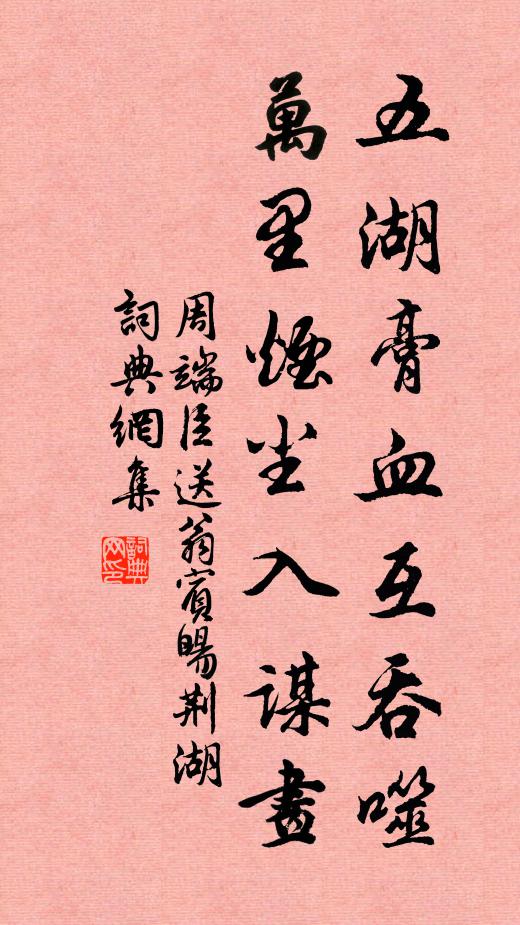 五湖膏血互吞噬
萬里煙尘入謀畫
周端臣送翁賓暘荆湖
詞典網集
詞典
网印